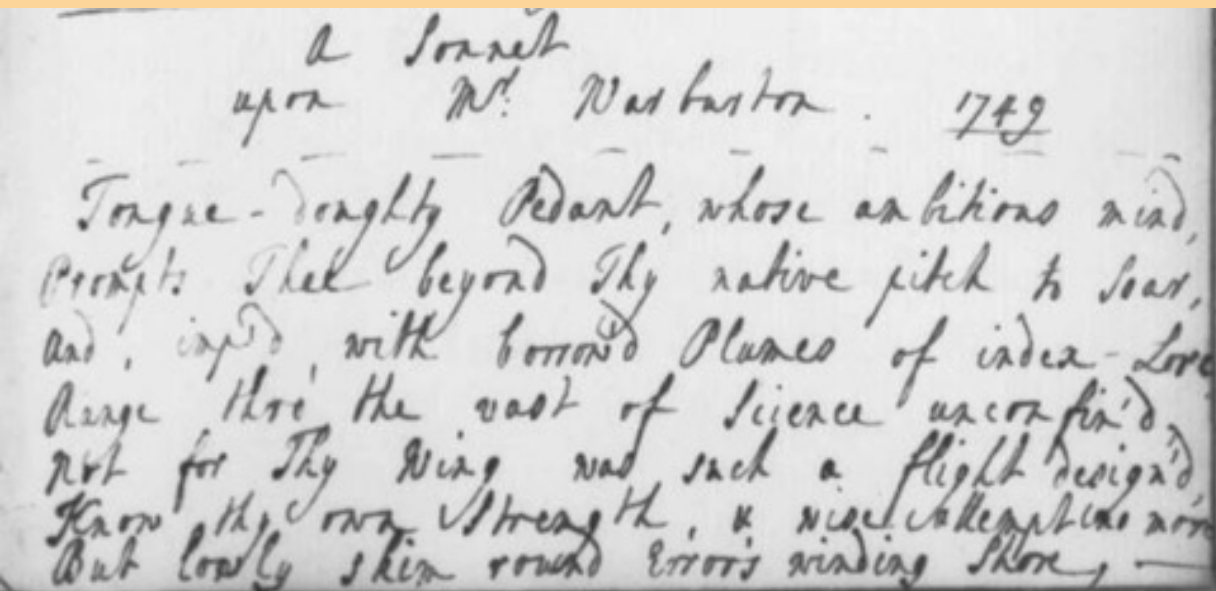 A Sonnet
upon Mr. Warburton. 1749
Tongue-doughty Pedant, whose ambitious mind,
Prompts Thee beyond Thy native pitch to soar,
And, imp'd, with borrow'd Plumes of index-Lore
Range thro' the vast of Science unconfin'd,
Not for Thy Wing was such a flight design'd,
Know thy own Strength, & wise attempt no more
But lowly skim round Error's winding Shore,